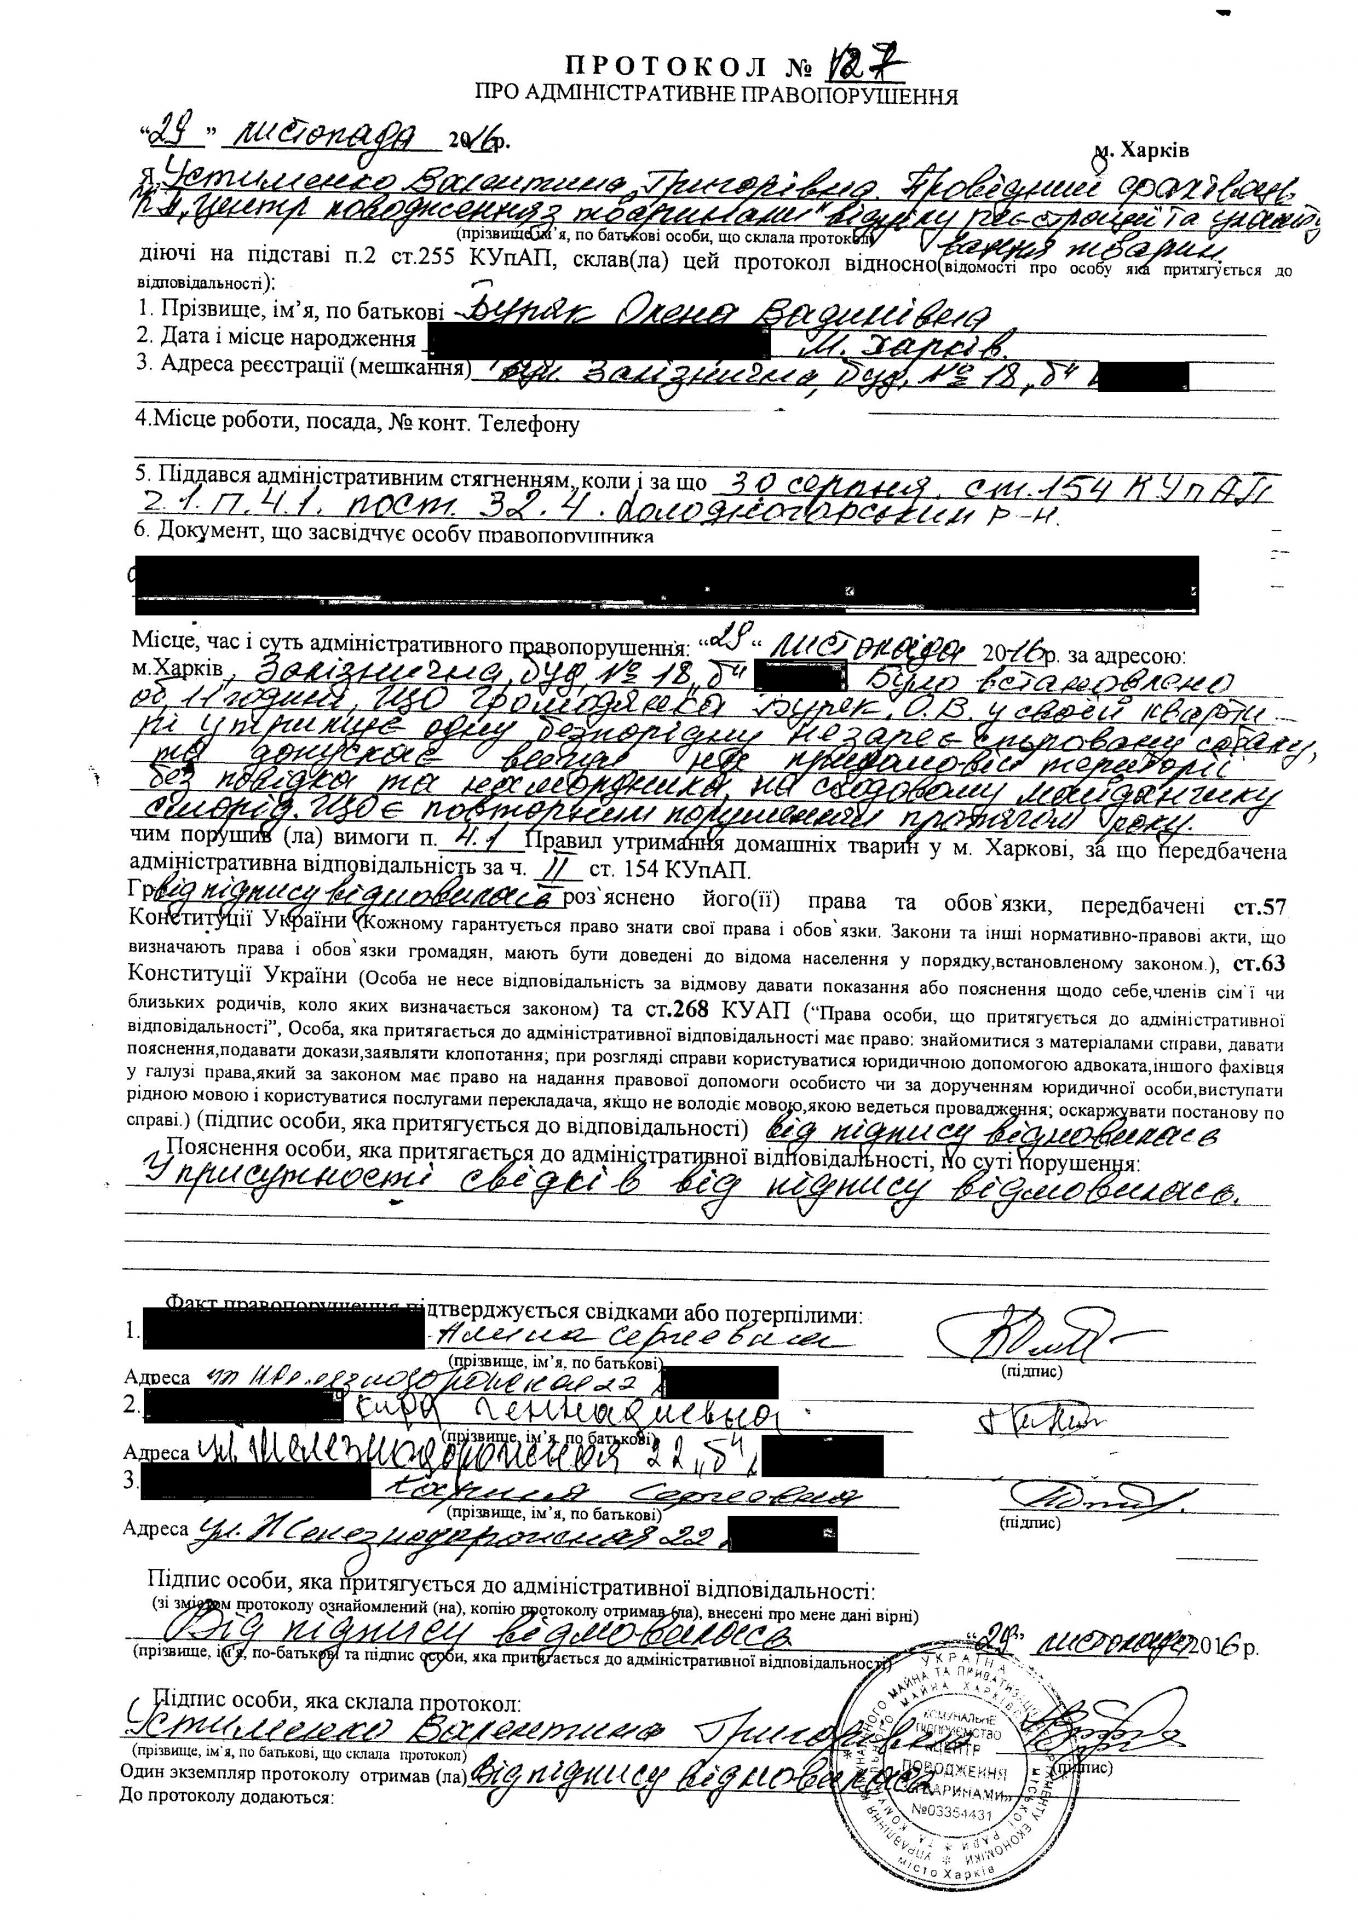 ПРОТОКОЛ № 127
ПРО АДМІНІСТРАТИВНЕ ПРАВОПОРУШЕННЯ
"29" листопада 2016р.
м. Харків
Я Устименко Валентина Григорівна. Провідний фахівець
КП „Центр поводження з тваринами" відділу реєстрації та
(прізвище,ім'я, по батькові особи, що склала протокол)
вання тварин.
діючі на підставі п.2 ст.255 КУпАП, склав(ла) цей протокол відносно(відомості про особу яка притягується до
відповідальності):
1. Прізвище, ім'я, по батькові Буряк Олена Вадимівна
2. Дата і місце народження м. Харків.
3. Адреса реєстрації (мешкання) вул. Залізнична, буд. № 18 „б"
4.Місце роботи, посада, № конт. Телефону
5. Піддався адміністративним стягненням, коли і за що 30 серпня. ст.154 КУпАП
ч.1.П.4.1. пост. 32.4. Холодногорським р-н.
6. Документ, що засвідчує особу правопорушника
Місце, час і суть адміністративного правопорушення: "29" листопада 2016р. за адресою:
м.Харків, Залізнична, буд. № 18 „б" Було встановлено
об 11 годині, що громодянка Буряк. О.В. у своєй кварти-
рі утримує одну безпорідну незареєстровану собаку,
та допускає вигул на придомовій території
без повідка та намордника, на сходовому майданчику
що є повторним порушенням протягом року.
чим порушив (ла) вимоги п. 4.1 Правил утримання домашніх тварин у м. Харкові, за що передбачена
адміністративна відповідальність за ч. II ст. 154 КУпАП.
Гр. від підпису відмовилась роз`яснено його(її) права та обов`язки, передбачені ст.57
Конституції України (Кожному гарантується право знати свої права і обов`язки. Закони та інші нормативно-правові акти, що
визначають права і обов`язки громадян, мають бути доведені до відома населення у порядку,встановленому законом.), ст.63
Конституції України (Особа не несе відповідальність за відмову давати показання або пояснення щодо себе,членів сім`ї чи
близьких родичів, коло яких визначається законом) та ст.268 КУАП ("Права особи, що притягується до адміністративної
відповідальності", Особа, яка притягається до адміністративної відповідальності має право: знайомитися з матеріалами справи, давати
пояснення,подавати докази,заявляти клопотання; при розгляді справи користуватися юридичною допомогою адвоката,іншого фахівця
у галузі права,який за законом має право на надання правової допомоги особисто чи за дорученням юридичної особи,виступати
рідною мовою і користуватися послугами перекладача, якщо не володіє мовою,якою ведеться провадження; оскаржувати постанову по
справі.) (підпис особи, яка притягується до відповідальності) від підпису відмовилась
Пояснення особи, яка притягається до адміністративної відповідальності, по суті порушення:
У присутності свідків від підпису відмовилась.
Факт правопорушення підтверджується свідками або потерпілими:
1. Алина Сергеевна
(прізвище, ім'я, по батькові)
(підпис)
Адреса ул Железнодорожная 22
2. Кира Геннадиевна
(прізвище, ім'я, по батькові)
Адреса ул. Железнодорожная 22 „б"
3. Карина Сергеевна
(прізвище, ім'я, по батькові)
(підпис)
Адреса ул. Железнодорожная 22
Підпис особи, яка притягується до адміністративної відповідальності:
(зі змістом протоколу ознайомлений (на), копію протоколу отримав (ла), внесені про мене дані вірні)
Від підпису відмовилась "29" листопада 2016р.
(прізвище, ім'я, по-батькові та підпис особи, яка притягається до адміністративної відповідальності)
Підпис особи, яка склала протокол:
Устименко Валентина Григорівна
(прізвище, ім'я, по батькові, що склала протокол)
(підпис)
Один екземпляр протоколу отримав (ла) Від підпису відмовилась
До протоколу додаються:
УКРАЇНА
КОМУНАЛЬНЕ
ПІДПРИЄМСТВО
«ЦЕНТР
ПОВОДЖЕННЯ
З ТВАРИНАМИ»
№03354431
місто Харків